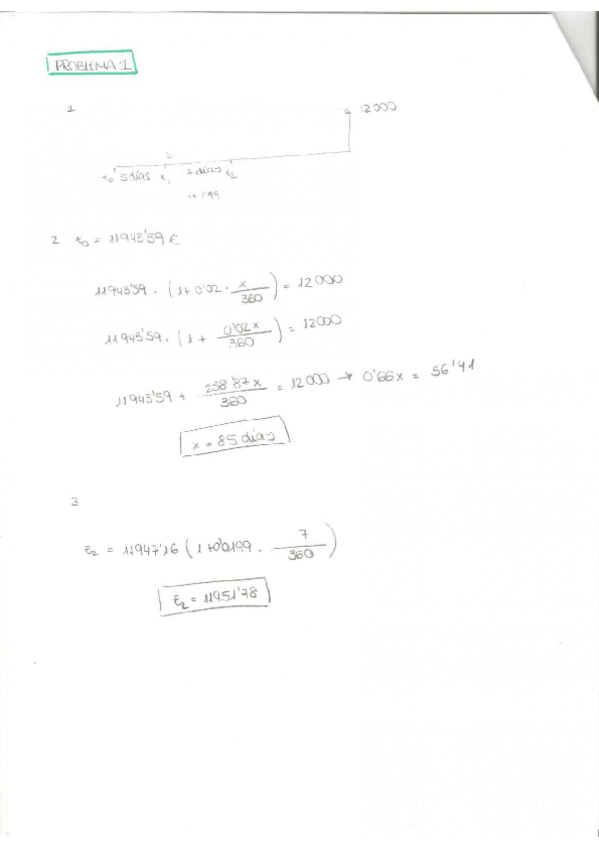 PROBLEMA 1
1
12000
t0 5 días t1 7 días t2
2 t0 = 11943'59 €
11943'59 · (1 + 0'02 · x/360) = 12000
11943'59 · (1 + 0'02x/360) = 12000
11943'59 + 238'87x/360 = 12000 → 0'66x = 56'41
x = 85 días
3
t2 = 11947'16 (1 + 0'0199 · 7/360)
t2 = 11951'78